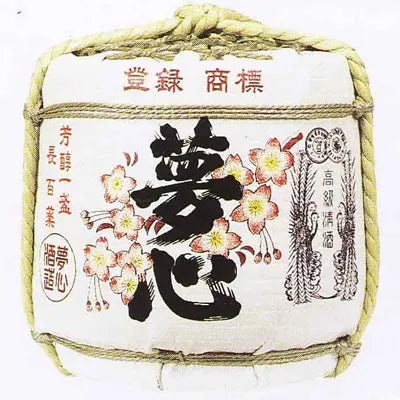 登録 商標
高級清酒
夢心
芳醇一盞
長百薬
夢心
酒造